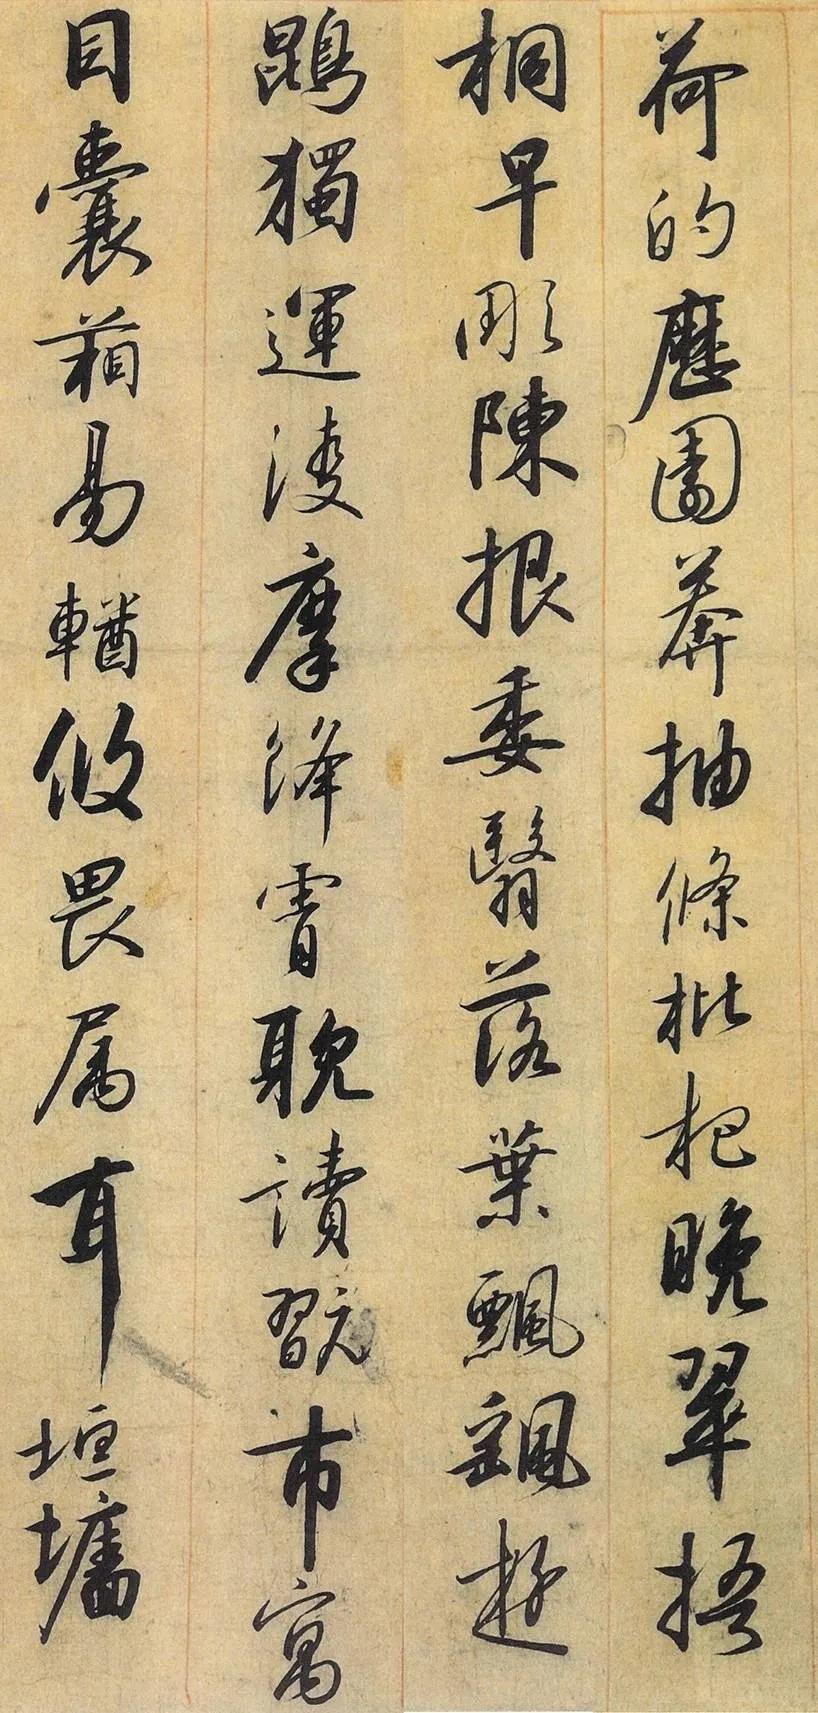 荷的歷園莽抽條枇杷晚翠梧
桐早彫陳根委翳落葉飄颻遊
鵾獨運淩摩絳霄耽讀翫市寓
目囊葙易輶攸畏属耳垣墻